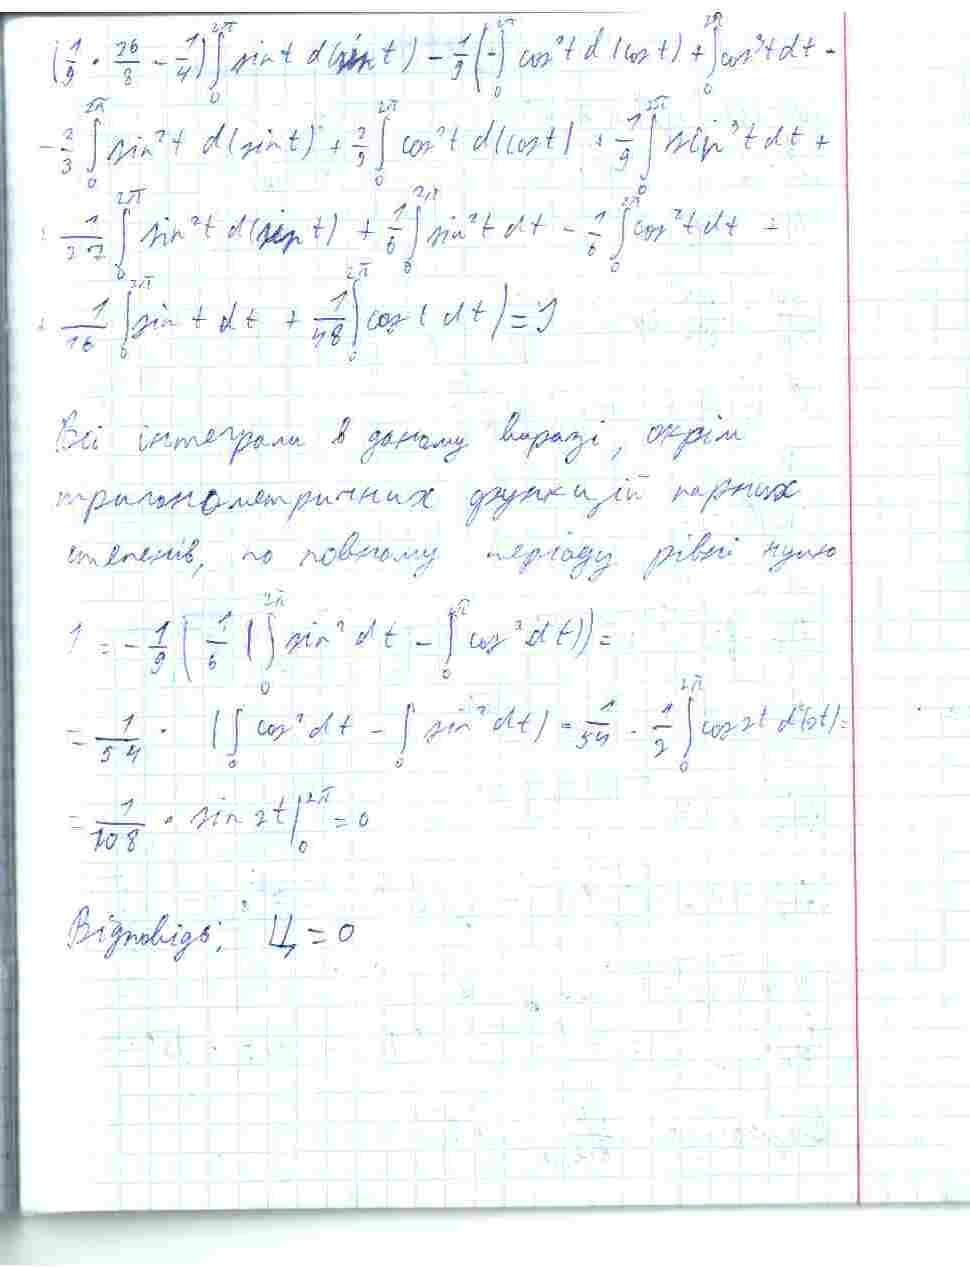 (1/9 · 26/8 - 1/4) ∫₀^2π sin t d(sin t) - 1/9 (-∫₀^2π cos²t d(cos t) + ∫₀^2π cos³t dt -
- 2/3 ∫₀^2π sin²t d(sin t) + 2/9 ∫₀^2π cos²t d(cos t) + 1/9 ∫₀^2π sin³t dt +
1/27 ∫₀^2π sin²t d(sin t) + 1/6 ∫₀^2π sin²t dt - 1/6 ∫₀^2π cos²t dt +
+ 1/16 ∫₀^2π sin t dt + 1/48 ∫₀^2π cos t dt) = I
Всі інтеграли в даному виразі, окрім
тригонометричних функцій парних
степенів, по повному періоду рівні нулю
I = - 1/9 (1/6 (∫₀^2π sin² dt - ∫₀^2π cos² dt)) =
= 1/54 · (∫₀ cos² dt - ∫₀ sin² dt) = 1/54 · 1/2 ∫₀^2π cos 2t d(2t) =
= 1/108 · sin 2t |₀^2π = 0
Відповідь: Ц = 0